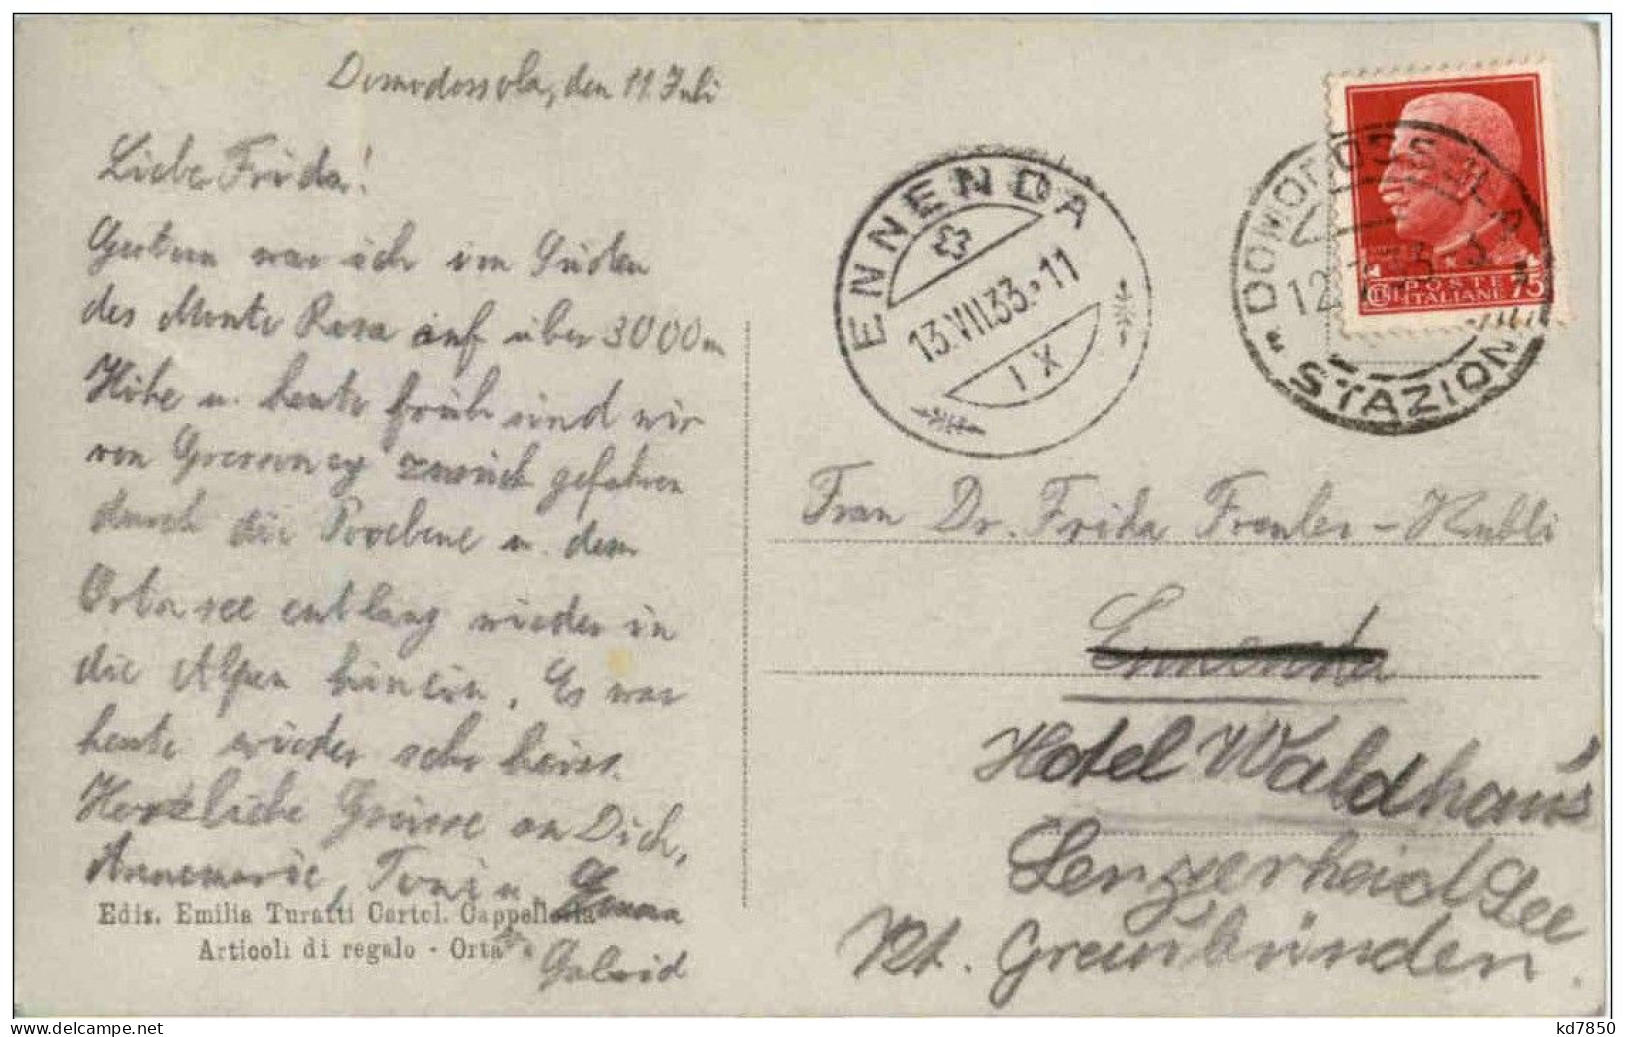 Domodossola, den 11. Juli
Liebe Frida!
Gestern war ich im Süden
des Monte Rosa auf über 3000 m
Höhe u. heute früh sind wir
von Gressoney zurück gefahren
durch die Poebene u. dem
Ortasee entlang wieder in
die Alpen hinein. Es war
heute wieder sehr heiss.
Herzliche Grüsse an Dich,
Annemarie, Toni u.
Edis. Emilia Turatti Cartol. Cappelleria
Articoli di regalo - Orta
ENNENDA
13.VII.33.-11
IX
DOMODOSSOLA
12
STAZIONE
POSTE
ITALIANE 75
Frau Dr. Frida - Kubli
Ennenda
Hotel Waldhaus
Lenzerheid See
Kt. Graubünden.
kd7850
www.delcampe.net